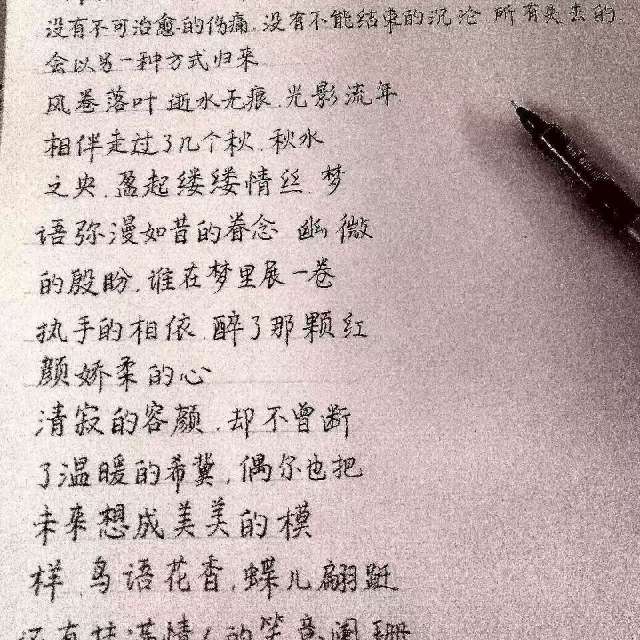 没有不可治愈的伤痛,没有不能结束的沉沦 所有失去的
会以另一种方式归来
风卷落叶 逝水无痕.光影流年
相伴走过了几个秋.秋水
之央.盈起缕缕情丝.梦
语弥漫如昔的眷念 幽微
的殷盼.谁在梦里展一卷
执手的相依.醉了那颗红
颜娇柔的心
清寂的容颜.却不曾断
了温暖的希冀,偶尔也把
未来想成美美的模
样.鸟语花香,蝶儿翩跹
还有挂满情人的笑意阑珊